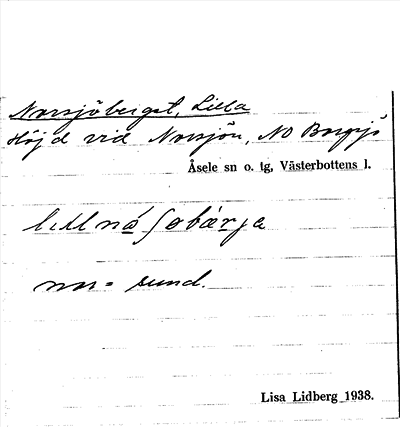 Norrsjöberget, Lilla
Höjd vid Norrsjön, NO Borgsjö
Åsele sn o. tg, Västerbottens l.
nor = sund.
Lisa Lidberg 1938.